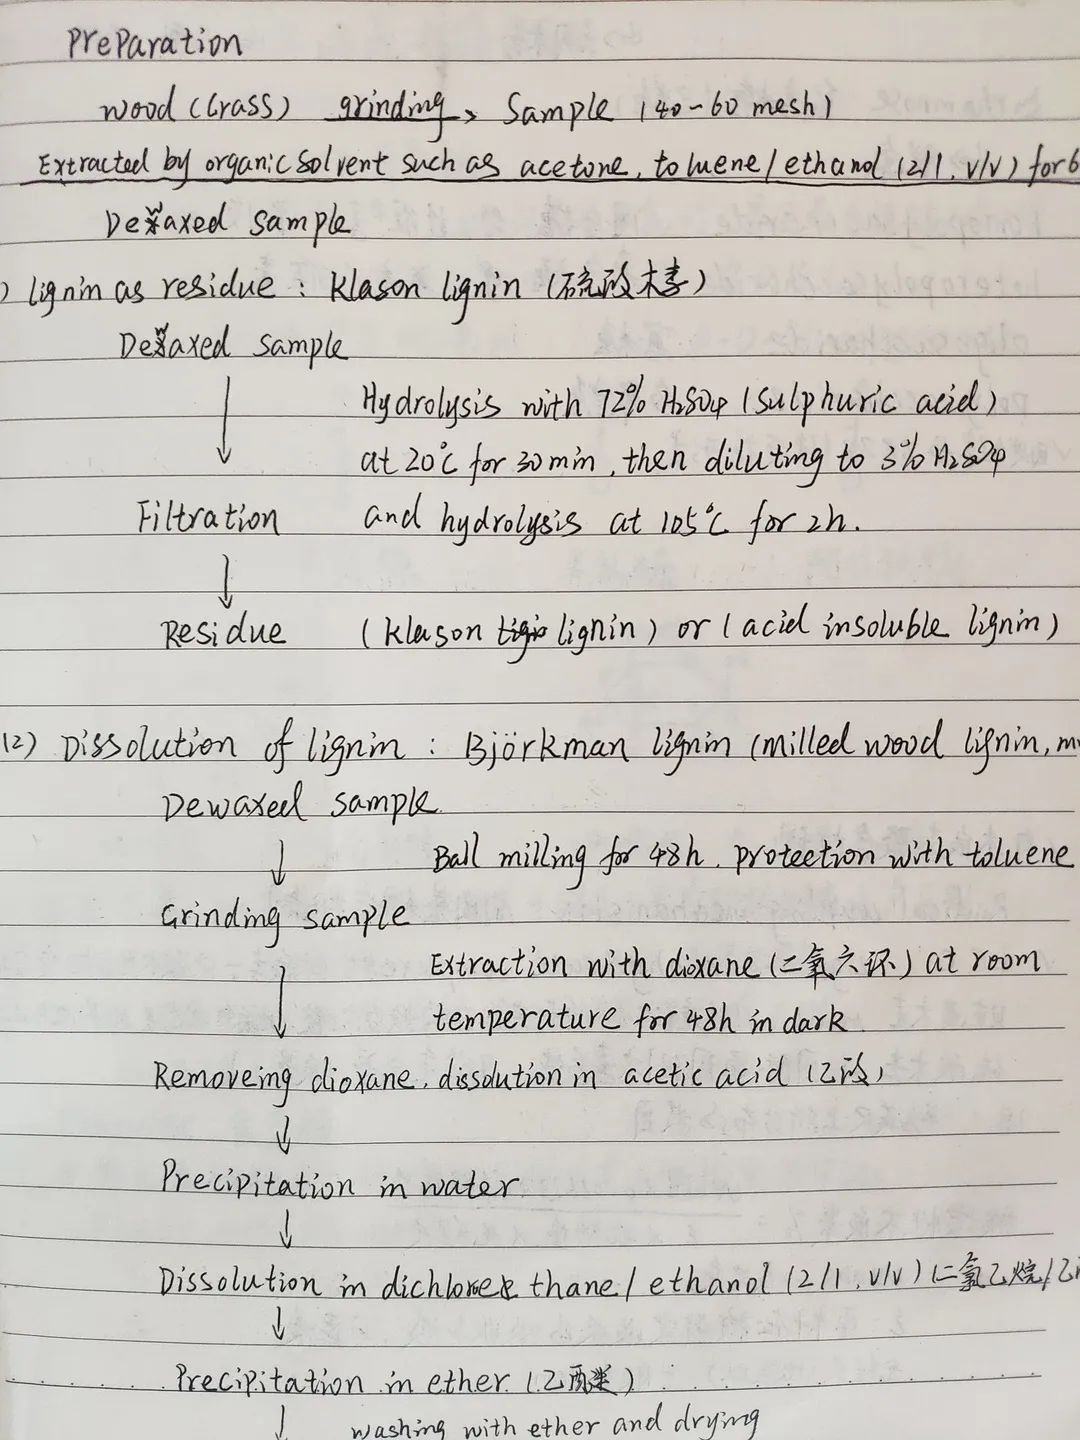 Preparation
wood (Grass) grinding → Sample (40-60 mesh)
Extracted by organic solvent such as acetone, toluene/ethanol (2/1, v/v) for 6
Dewaxed sample
) lignin as residue : Klason lignin (硫酸木素)
Dewaxed sample
↓ Hydrolysis with 72% H₂SO₄ (sulphuric acid)
at 20°C for 30 min, then diluting to 3% H₂SO₄
Filtration and hydrolysis at 105°C for 2h.
↓
Residue (Klason lignin) or (acid insoluble lignin)
(2) Dissolution of lignin : Björkman lignin (milled wood lignin, m
Dewaxed sample
↓ Ball milling for 48h, protection with toluene
Grinding sample
↓ Extraction with dioxane (二氧六环) at room
temperature for 48h in dark
Removeing dioxane, dissolution in acetic acid (乙酸)
↓
Precipitation in water
↓
Dissolution in dichloroethane/ethanol (2/1, v/v) (二氯乙烷/乙
↓
Precipitation in ether (乙醚)
↓ washing with ether and drying